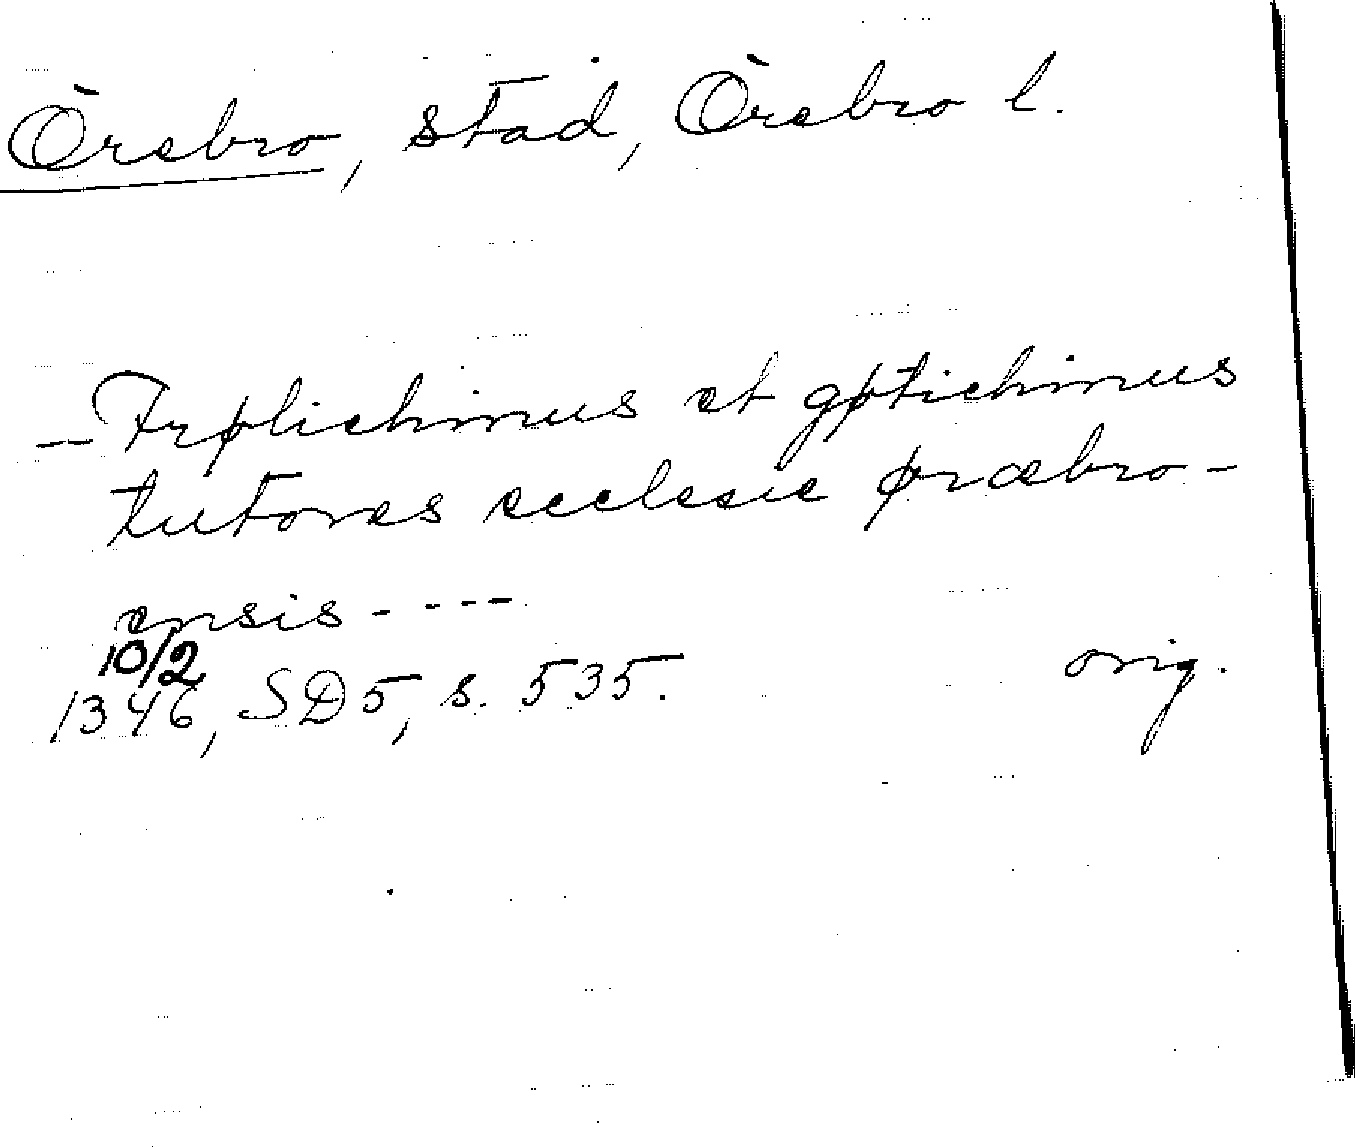 Örebro, stad, Örebro l.
-- Frølichinus et gøtichinus
tutores ecclesie øræbro-
ensis - ----
10/2
1346, SD 5, s. 535. orig.